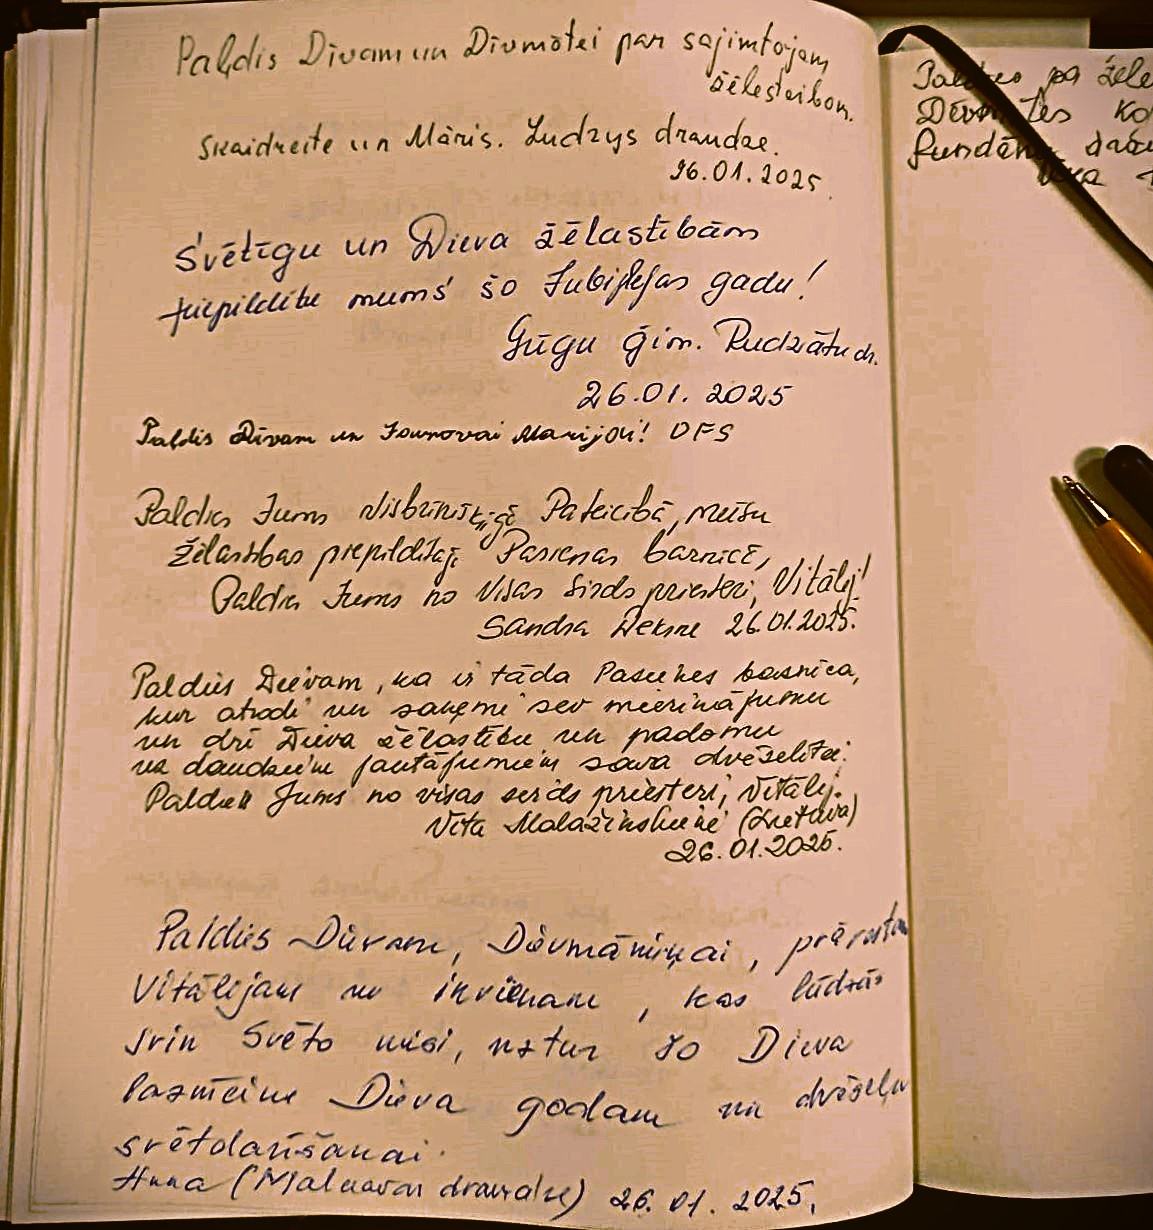 Paldis Dīvam un Dīvmātei par sajimtajom
žēlesteibom.
Skaidreite un Māris. Ludzys draudze.
26.01.2025.
Svētīgu un Dieva žēlastībām
piepildītu mums šo Jubilejas gadu!
Gūgu ģim. Rudzātu dr.
26.01.2025
Paldis Dīvam un Jaunovai Marijai! OFS
Paldies Jums Visbrīnišķīgā Pateicībā, mūsu
žēlastības piepildītajā Pasienas baznīcā,
Paldies Jums no Visas Sirds priesteri, Vitālij!
Sandra 26.01.2025.
Paldies Dievam, ka ir tāda Pasienes baznīca,
kur atrodi un saņemi sev mierinājumu
un arī Dieva žēlastību un padomu
uz daudziem jautājumiem sava dvēselītei.
Paldies Jums no visas sirds priesteri, Vitālij.
Vita (Lietuva)
26.01.2025.
Paldies Dievam, Dievmāmiņai,
Vitālijam un ikvienam, kas lūdzās
šrin Svēto misi, uztur šo Dieva
Dieva godam un dvēseļu
svētdarīšanai.
Anna (Malnavas draudze) 26.01.2025.
žēle
Dievmātes